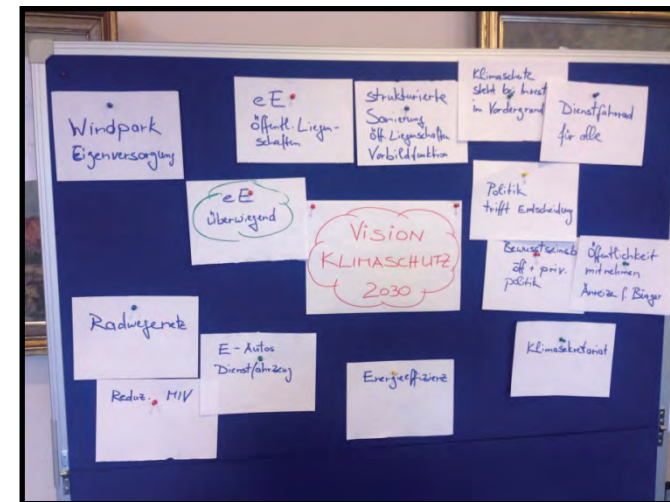 Windpark
Eigenversorgung
eE
öffentl. Liegen-
schaften
strukturierte
Sanierung
öff. Liegenschaften
Vorbildfunktion
Klimaschutz
steht bei Invest
im Vordergrund
Dienstfahrrad
für alle
eE
überwiegend
VISION
KLIMASCHUTZ
2030
Politik
trifft Entscheidung
öff + priv.
politik
Öffentlichkeit
mitnehmen
Anreize f. Bürger
Radwegenetz
Reduz. MIV
E-Autos
Dienstfahrzeug
Energieeffizienz
Klimasekretariat